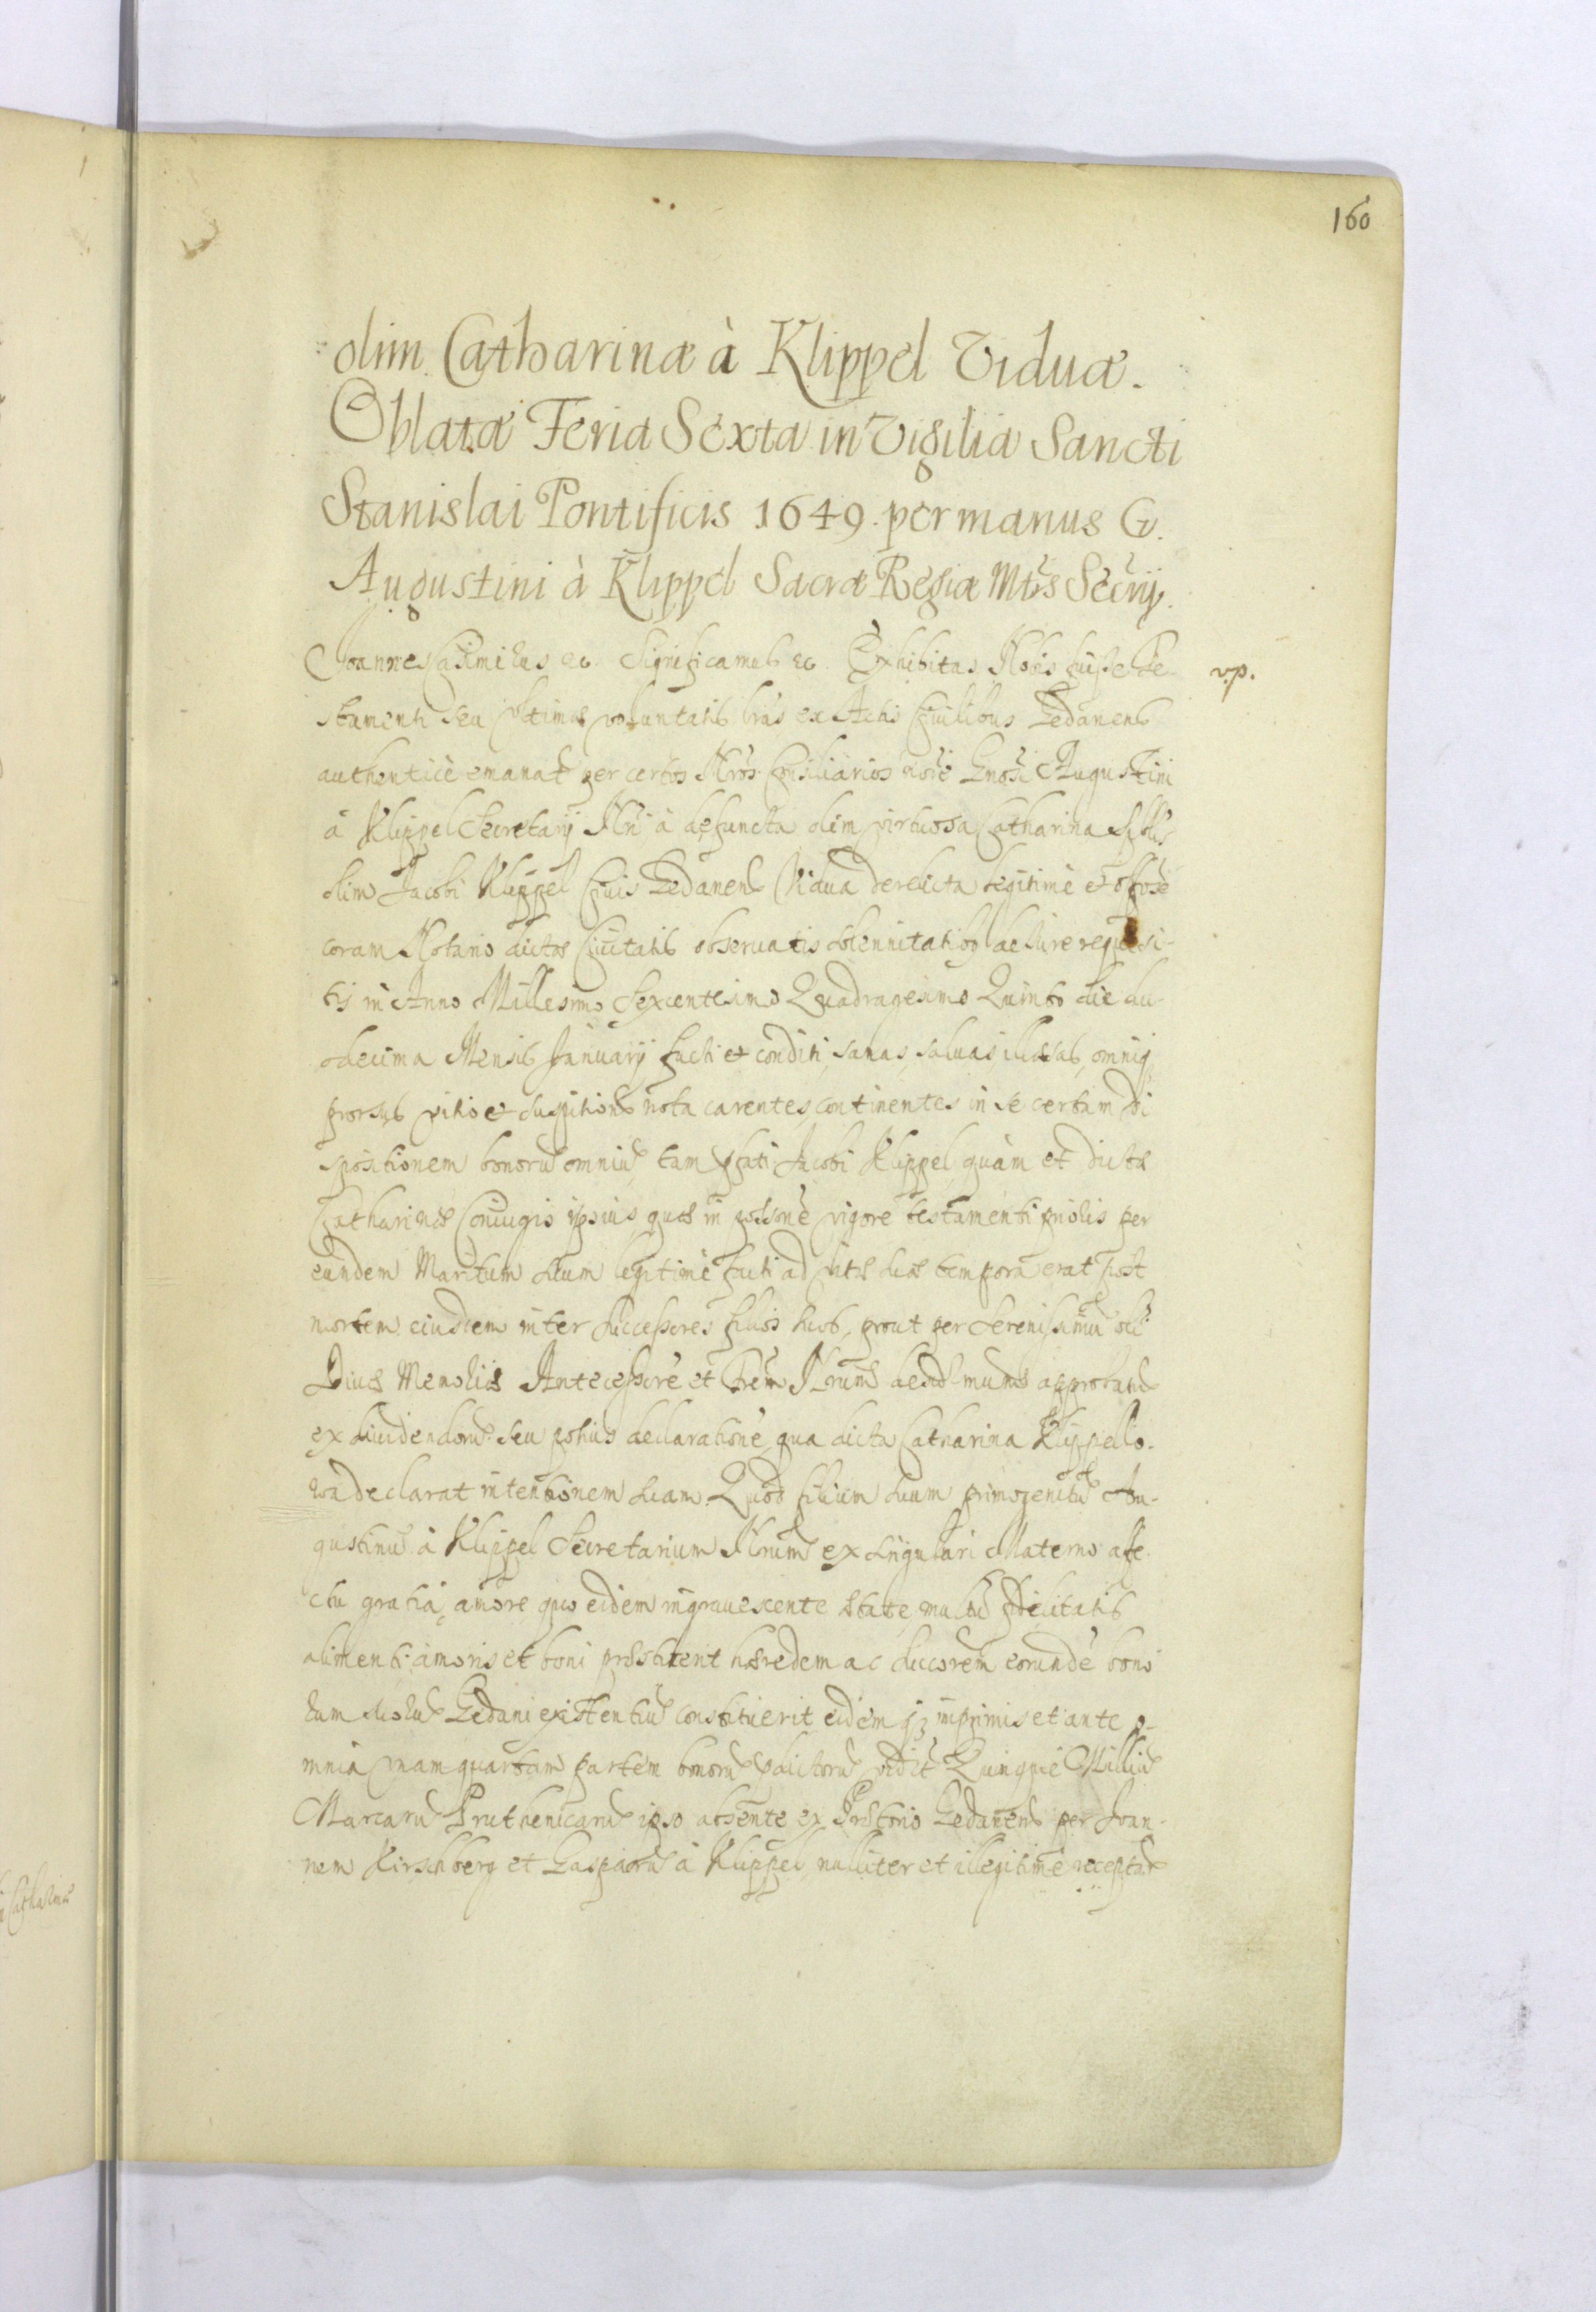 160
olim Catharinæ à Klippel Viduæ.
Oblatæ Feria Sexta in Vigilia Sancti
Stanislai Pontificis 1649. per manus G.
Augustini à Klippel Sacræ Regiæ Mtis Secrij.
Joannes Casimirus etc. Significamus etc. Exhibitas Nobis fuisse te- v.p.
stamenti seu ultimæ voluntatis lras ex Actis Civilibus Gedanens
authenticè emanat per certos Nros Consiliarios noie Gnosi Augustini
à Klippel Secretarij Nri à defuncta olim virtuosa Catharina
olim Jacobi Klippel Civis Gedanens Vidua derelicta legitimè et
coram Notario dictæ Civitatis observatis solennitatibq de Jure requisi-
tis in Anno Millesimo Sexcentesimo Quadragesimo Quinto die du-
odecima Mensis Januarij facti et conditi, sanas, salvas, illæsas, omniq
prorsus vitio et suspitione nota carentes, continentes in se certam di
spositionem bonorū omniū, tam pfati Jacobi Klippel, quàm et dictæ
Catharinæ Coniugis ipsius, quæ in possone vigore testamenti prioris per
eundem Maritum suum legitimè facti ad vitæ suæ tempora erat post
mortem eiusdem inter successores filios suos, prout per Serenissimū
Divæ Memoriæ Antecessorē et frem Nrum approbatū
ex dividendorū seu potius declaratione, qua dicta Catharina Klippello-
wa declarat intentionem suam. Quod filium suum primogenitū Au-
gustinū à Klippel Secretarium Nrum ex singulari Materno affe-
ctu gratia, amore, quo eidem ingravescente ætate, multū fidelitatis
alimenti amoris et boni præstiterit hæredem ac succorem eorundē bono
rum Gedani existentiū constituerit, eidem imprimis et ante o-
mnia unam quartam partem bonorū videlt Quinque Milliū
Marcarū Pruthenicarū ipso absente ex Prætorio Gedanens per Joan-
nem Kirschberg et Gasparū à Klippel nulliter et illegitimè receptar